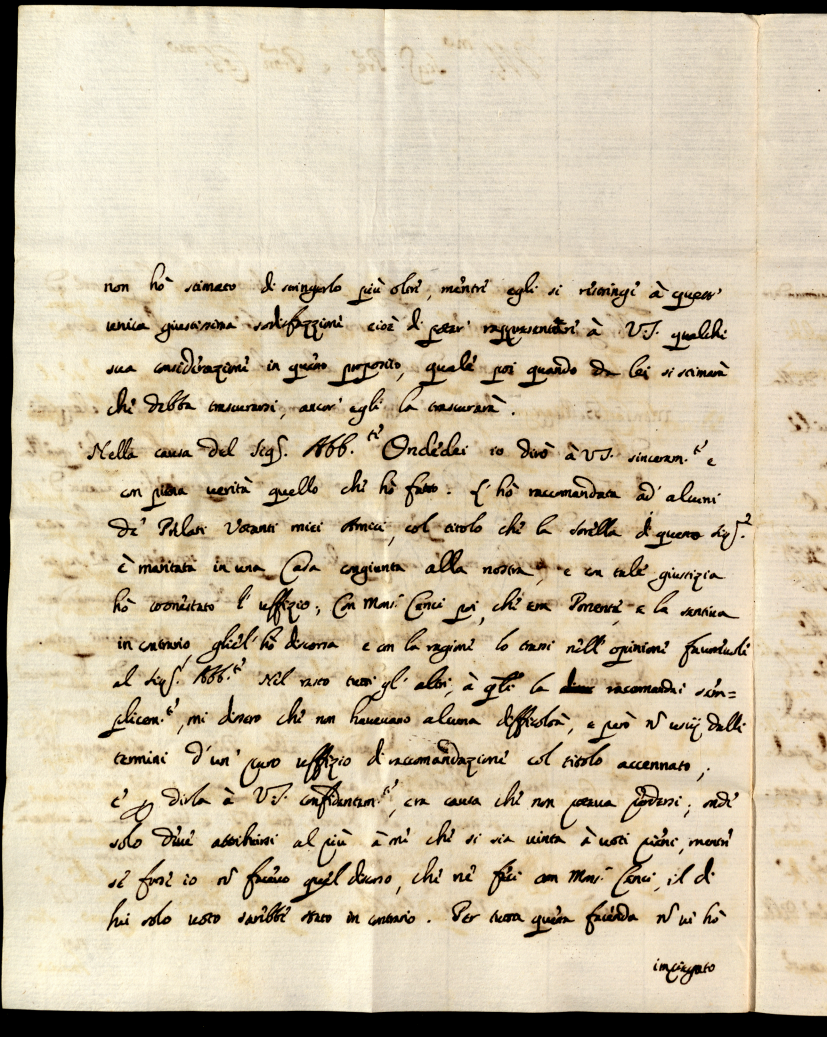 non hò stimato di stringerlo più oltre, mentre egli si ristringe à quest'
unica giustissima sodisfazzione cioè di poter' rappresentare à V.S. qualche
sua considerazione in questo proposito, quale poi quando da lei si stimarà
che debba trascurarsi, ancor' egli la trascurarà.
Nella causa del Sig.r Abb.te Ondedei io dirò à V.S. sinceram.te e
con piena verità quello che hò fatto. L'hò raccomandata ad' alcuni
de' Prelati Votanti miei Amici, col titolo che la sorella di questo Sig.re
è maritata in una Casa congiunta alla nostra, e con tale giustizia
hò coonestato l'uffizio; Con Mons.r Cenci poi, che era Ponente, e la sentiva
in contrario gliel' hò discorsa e con la ragione lo trassi nell' opinione favorevole
al Sig.r Abb.te Nel resto tutti gl' altri, à q.li la raccomandai sem=
plicem.te, mi dissero che non havevano alcuna difficoltà, e però nō uscij dalli
termini d'un' puro uffizio di raccomandazione col titolo accennato;
e p dirla à V.S. confidentem.te, era causa che non poteva perdersi; onde
solo deve attribuirsi al più à me che si sia vinta à voti pieni, mentre
se forse io nō facevo quel discorso, che ne feci con Mons.r Cenci, il di
lui solo voto sarebbe stato in contrario. Per tutta questa facenda nō vi hò
impiegato